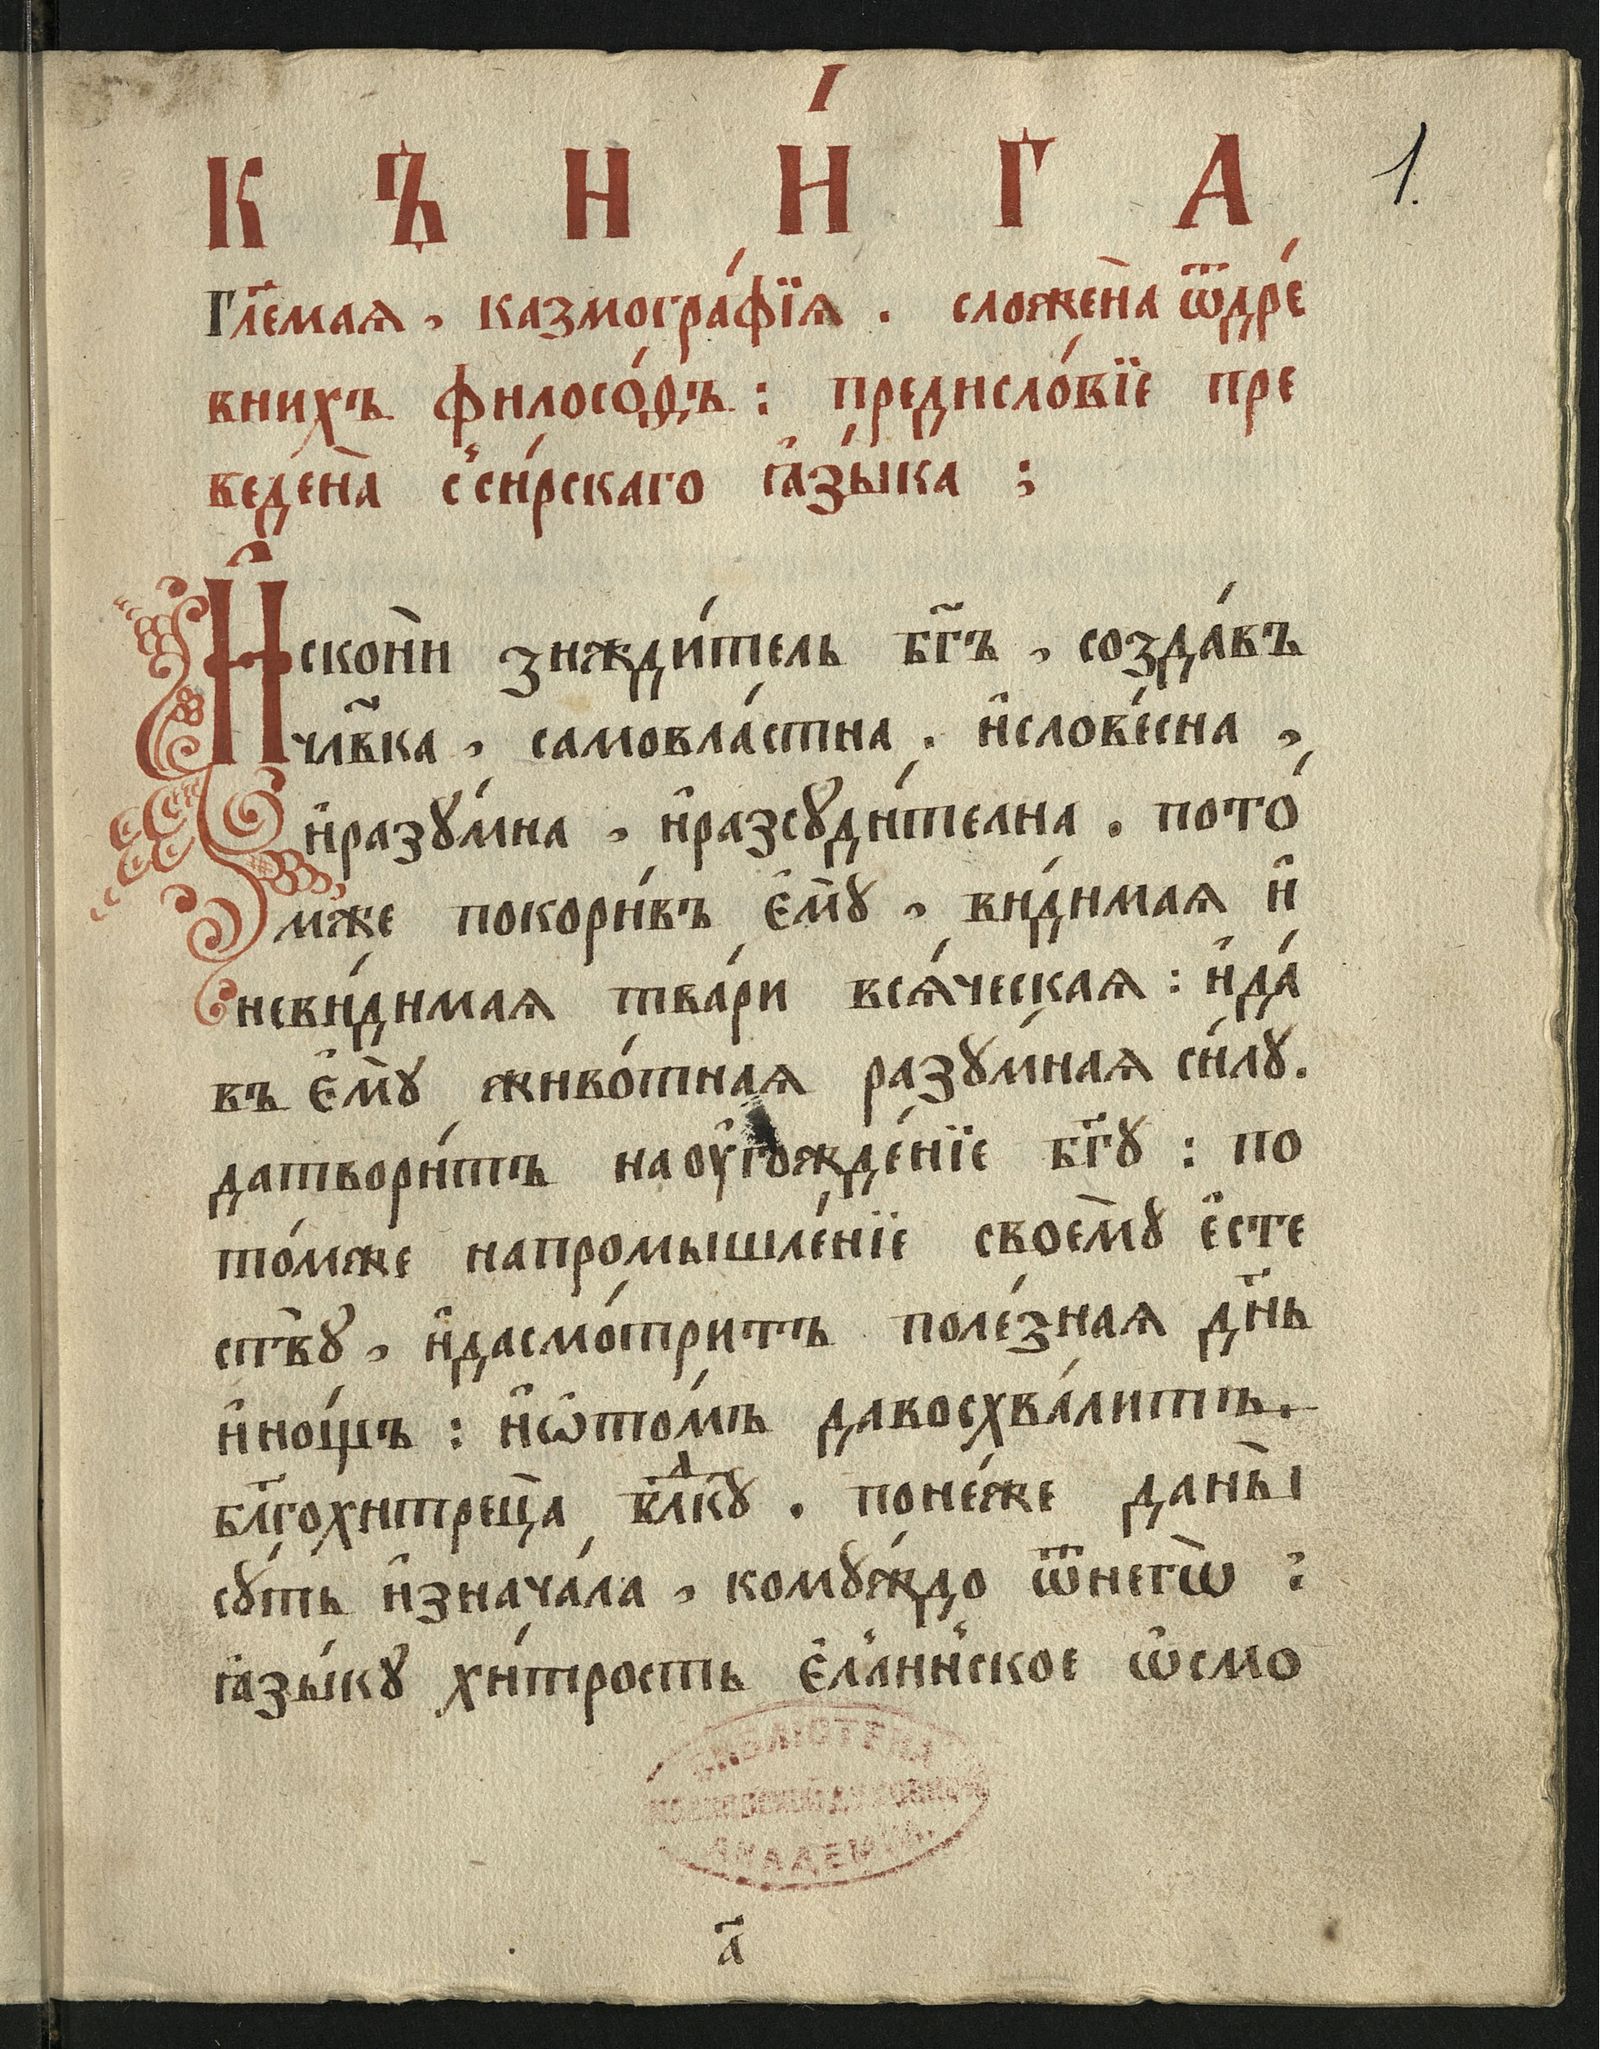 КЪНИ́ГА
1.
Гл҃емая, казмогра́фїѧ. сложе́на ѿдре́
внихъ филосо́ѳъ: предисло́вїе пре
веде́на сси́рскаго ꙗ҆зы́ка ;
И҆скони зижди́тель бг҃ъ, созда́въ
чл҃вка, самовла́стна. и҆слове́сна,
и҆разꙋ́мна, и҆разсꙋди́телна. пото́
мже покори́въ є҆мꙋ̀, ви́димаѧ и҆
неви́димаѧ тва́ри всѧ́ческаѧ: и҆да́
въ є҆мꙋ̀ живо́тнаѧ разꙋ́мнаѧ си́лꙋ.
датвори́тъ наоу҆гожде́нїе бг҃ꙋ: по
то́мже напромышле́нїе своемꙋ̀ є҆сте
ствꙋ̀, и҆дасмо́тритъ поле́знаѧ дн҃ь
и҆но́щъ: и҆ѡ҆то́мъ давосхва́литъ.
бл҃гохитреца̀ влⷣкꙋ. поне́же даны̀
сꙋ́ть и҆знача́ла, комꙋ́ждо ѿнегѡ̀ :
ꙗ҆зы́кꙋ хи́трость є҆́ллинское ѡ҆смо
БИБЛІОТЕКА
МОСКОВСКОЙ ДУХОВНОЙ
АКАДЕМІИ
а҃